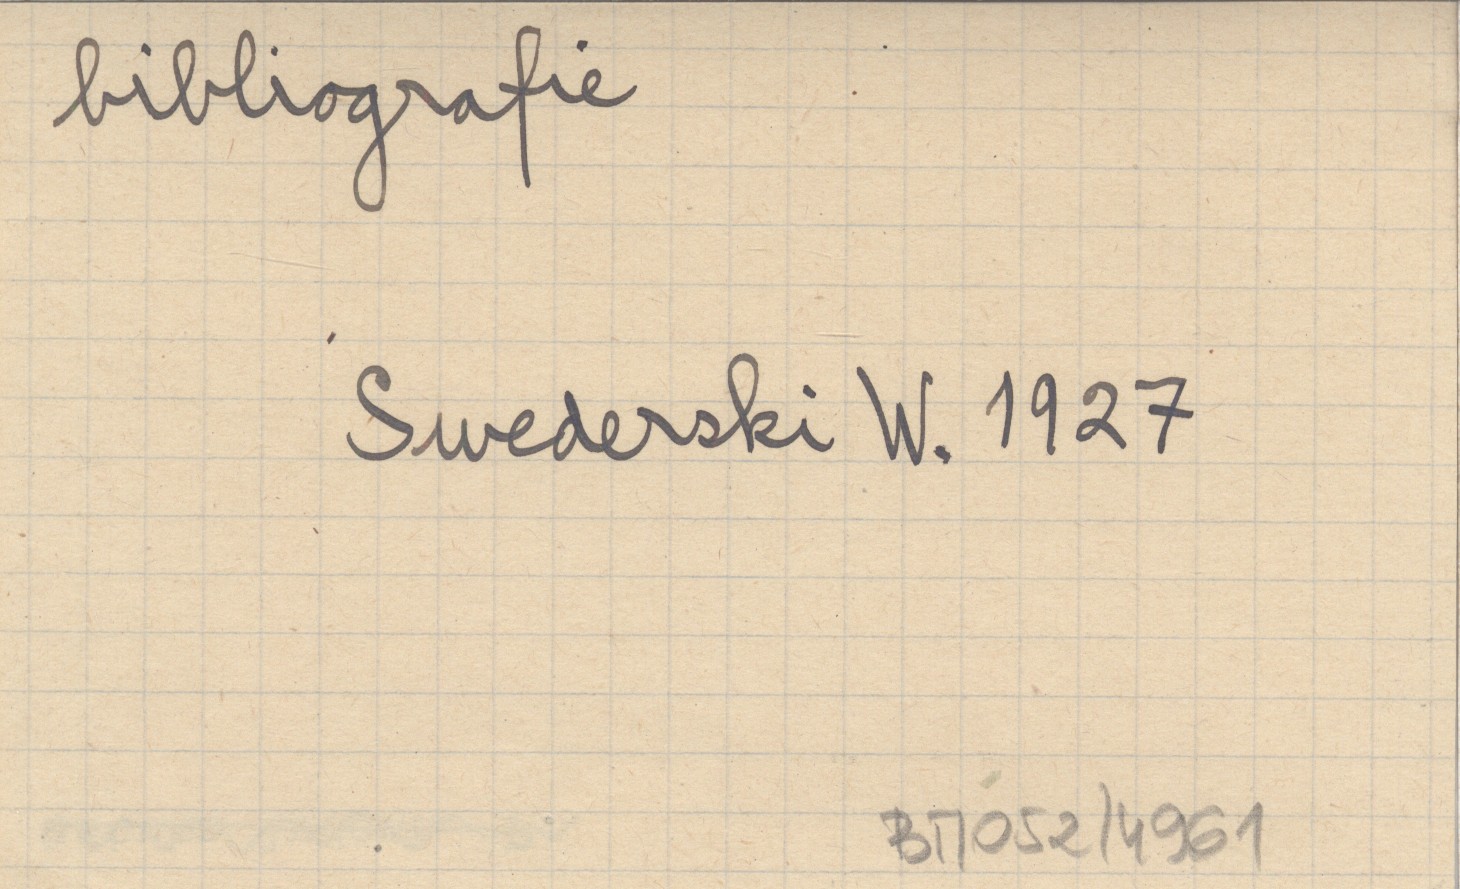 bibliografie
Swederski W. 1927
ВП052/4961